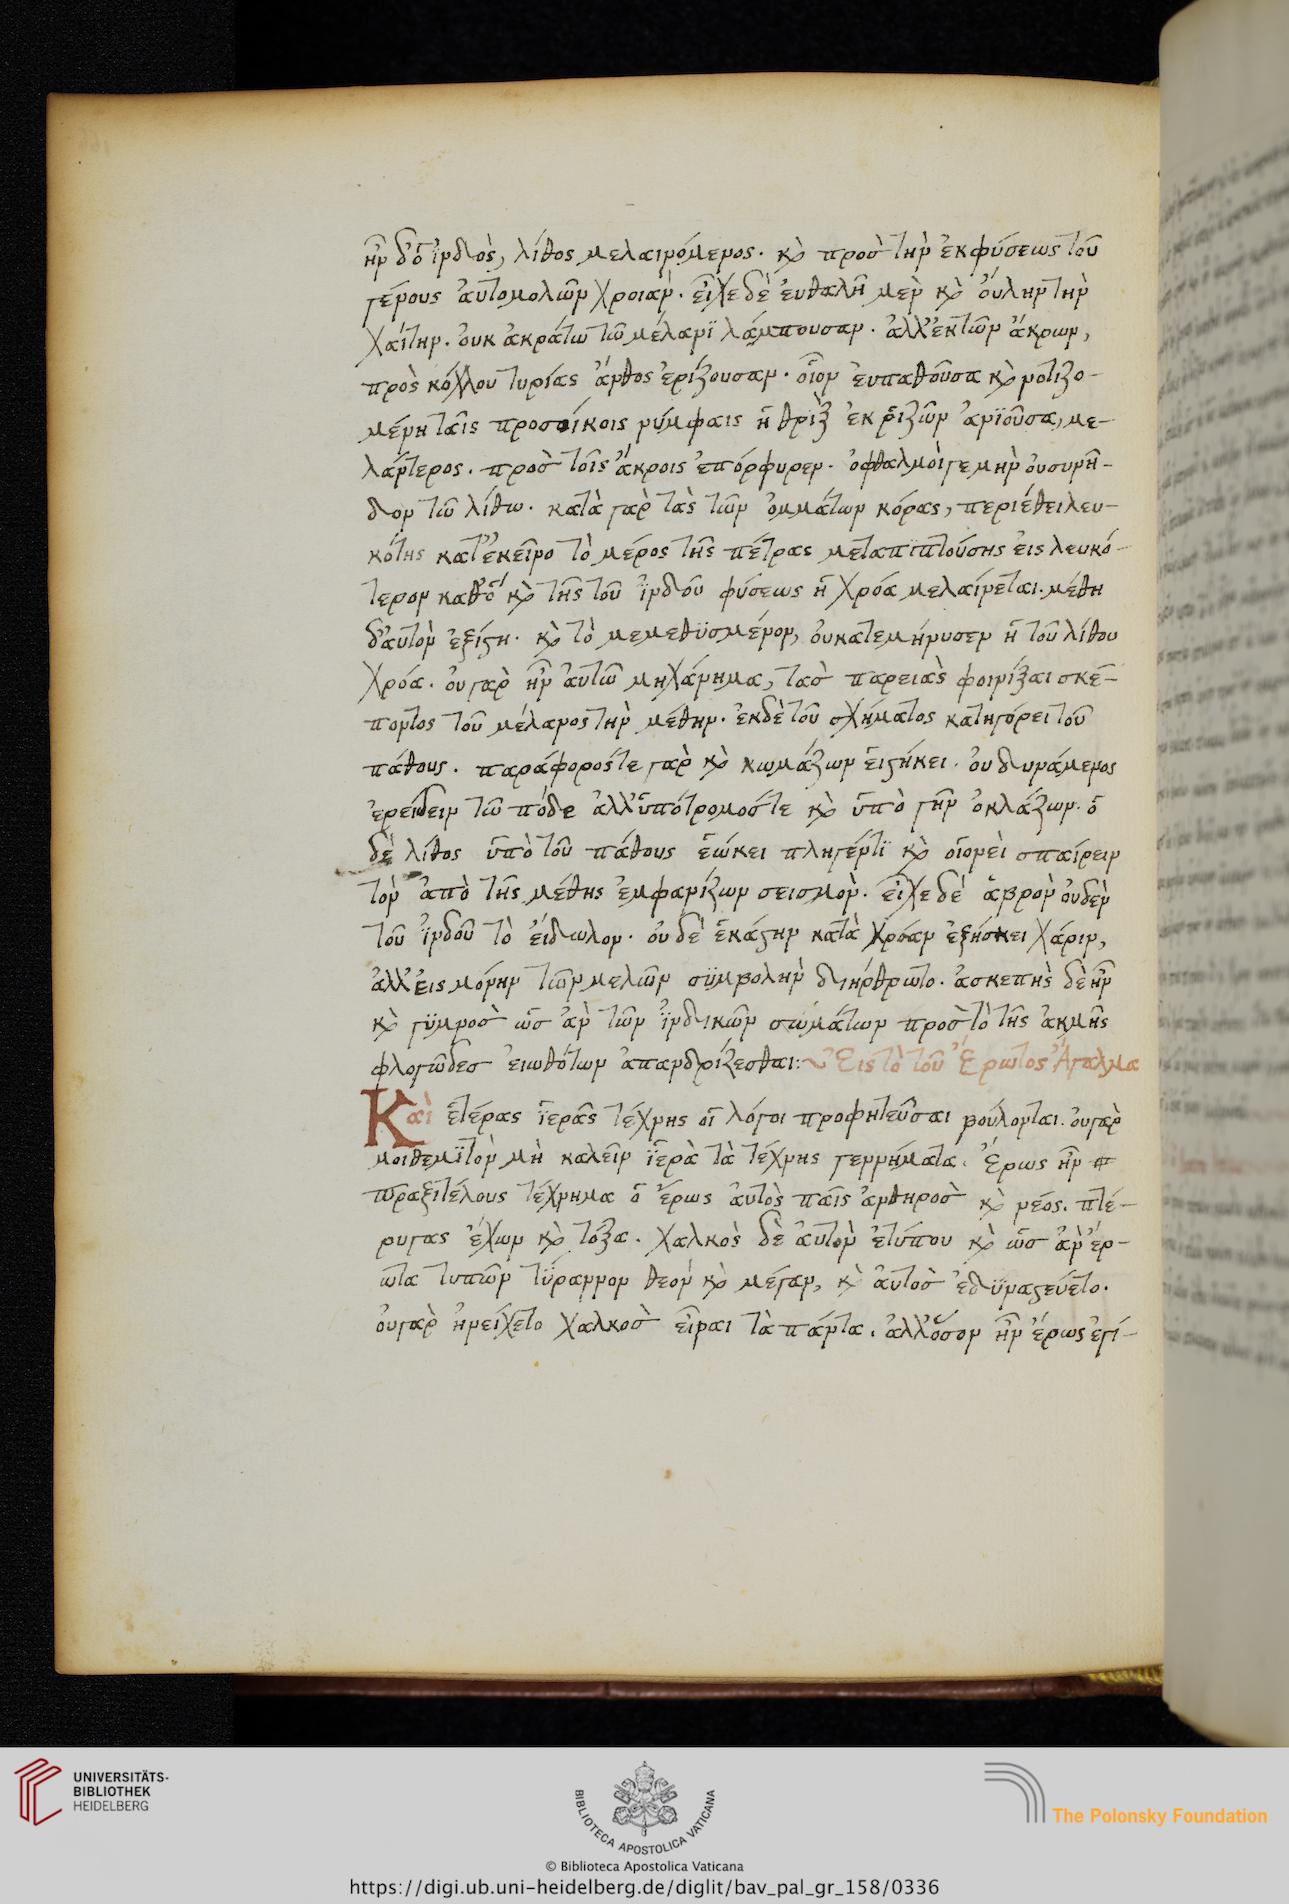 ἦν δ' ὁ ἰνδὸς, λίθος μελαινόμενος. καὶ πρὸς τὴν ἐκφύσεως τοῦ
γένους αὐτομολῶν χροιάν. εἶχε δὲ εὐθαλῆ μὲν καὶ οὔλην τὴν
χαίτην. οὐκ ἀκράτω τῶ μέλανϊ λάμπουσαν. ἀλλ' ἐκ τῶν ἄκρων,
πρὸς κόχλου τυρίας ἄνθος ἐρίζουσαν. οἷον εὐπαθοῦσα καὶ νοτιζο-
μένη ταῖς προσοίκοις νύμφαις ἡ θρὶξ ἐκ ῥιζῶν ἀνϊοῦσα, με-
λάντερος. πρὸς τοῖς ἄκροις ἐπόρφυρεν. ὀφθαλμοὶ γε μὴν οὐ συνῆ-
δον τῶ λίθω. κατὰ γὰρ τὰς τῶν ὀμμάτων κόρας, περιέθει λευ-
κότης κατ' ἐκεῖνο τὸ μέρος τῆς πέτρας μεταπϊπτούσης εἰς λευκό-
τερον καθ' ὃ καὶ τῆς τοῦ ἰνδοῦ φύσεως ἡ χρόα μελαίνεται. μέθη
δ' αὐτὸν ἐξίστη. καὶ τὸ μεμεθϋσμένον, οὐκ ἀτεμήνυσεν ἡ τοῦ λίθου
χρόα. οὐ γὰρ ἦν αὐτῶ μηχάνημα, τὰς παρειὰς φοινίξαι σκέ-
ποντος τοῦ μέλανος τὴν μέθην. ἐκ δὲ τοῦ σχήματος κατηγόρει τοῦ
πάθους. παράφορός τε γὰρ καὶ κωμάζων εἱστήκει. οὐ δυνάμενος
ἐρείδειν τῶ πόδε ἀλλ' ὑπότρομός τε καὶ ὑπὸ γῆν ὀκλάζων. ὁ
δὲ λίθος ὑπὸ τοῦ πάθους ἑώκει πληγέντϊ καὶ οἱονεὶ σπαίρειν
τὸν ἀπὸ τῆς μέθης ἐμφανίζων σεισμὸν. εἶχε δὲ ἁβρὸν οὐδὲν
τοῦ ἰνδοῦ τὸ εἴδωλον. οὐδὲ ἑκάστην κατὰ χρόαν ἐξήσκει χάριν,
ἀλλ' εἰς μόνην τῶν μελῶν συμβολὴν διήρθρωτο. ἀσκεπὴς δὲ ἦν
καὶ γϋμνὸς ὡς ἂν τῶν ἰνδικῶν σωμάτων πρὸς τὸ τῆς ἀκμῆς
φλογῶδες εἰωθότων ἀπανδρίζεσθαι:~ Εἰς τὸ τοῦ Ἔρωτος Ἄγαλμα
Καὶ ἑτέρας ἱερᾶς τέχνης οἱ λόγοι προφητεῦσαι βούλονται. οὐ γὰρ
μοι θεμιτὸν μὴ καλεῖν ἱερὰ τὰ τέχνης γεννήματα. Ἔρως ἦν π
πραξιτέλους τέχνημα ὁ ἔρως αὐτὸς παῖς ἀνθηρὸς καὶ νέος. πτέ-
ρυγας ἔχων καὶ τόξα. χαλκὸς δὲ αὐτὸν ἐτύπου καὶ ὡς ἂν ἔρ-
ωτα τυπῶν τϋραννον θεὸν καὶ μέγαν, καὶ αὐτὸς ἐδϋναστεύετο.
οὐ γὰρ ἠνείχετο χαλκὸς εἶναι τὰ πάντα. ἀλλ' ὅσον ἦν ἔρως ἐγί-
UNIVERSITÄTS-
BIBLIOTHEK
HEIDELBERG
BIBLIOTECA APOSTOLICA VATICANA
The Polonsky Foundation
© Biblioteca Apostolica Vaticana
https://digi.ub.uni-heidelberg.de/diglit/bav_pal_gr_158/0336